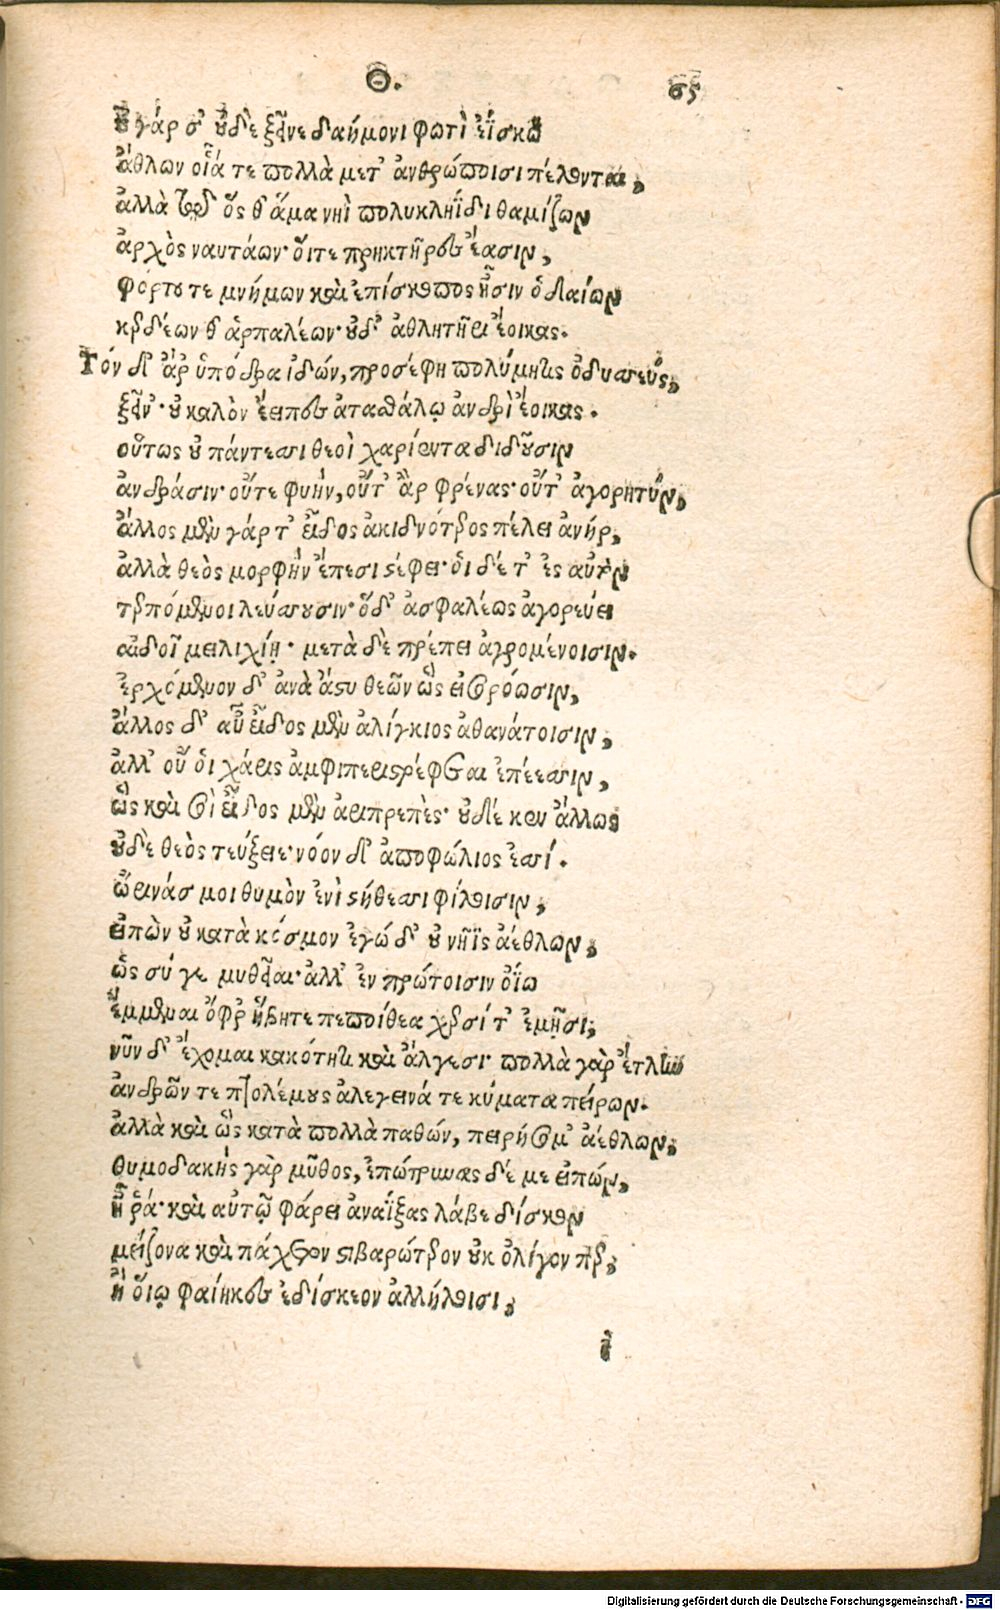 Θ. 65
οὐ γάρ σ' οὐδὲ ξεῖνε δαήμονι φωτὶ ἐΐσκω
ἄθλων οἷά τε πολλὰ μετ' ἀνθρώποισι πέλονται,
ἀλλὰ τῷ ὅς θ' ἅμα νηῒ πολυκληΐδι θαμίζων
ἀρχὸς ναυτάων· οἵτε πρηκτῆρες ἔασιν,
φόρτου τε μνήμων καὶ ἐπίσκοπος ᾖσιν ὁδαίων
κερδέων θ' ἁρπαλέων· οὐδ' ἀθλητῆρι ἔοικας.
Τόν δ' ἄρ ὑπόδρα ἰδών, προσέφη πολύμητις ὀδυσσεύς,
ξεῖν'· οὐ καλὸν ἔειπες ἀτασθάλῳ ἀνδρὶ ἔοικας.
οὕτως οὐ πάντεσσι θεοὶ χαρίεντα διδοῦσιν
ἀνδράσιν· οὔτε φυὴν, οὔτ' ἂρ φρένας· οὔτ' ἀγορητὺν,
ἄλλος μὲν γάρ τ' εἶδος ἀκιδνότερος πέλει ἀνήρ,
ἀλλὰ θεὸς μορφὴν ἔπεσι στέφει· οἱ δέ τ' ἐς αὐτὸν
τερπόμενοι λεύσσουσιν· ὅδ' ἀσφαλέως ἀγορεύει
αἰδοῖ μειλιχίῃ· μετὰ δὲ πρέπει ἀγρομένοισιν.
ἐρχόμενον δ' ἀνὰ ἄστυ θεῶν ὣς εἰσορόωσιν,
ἄλλος δ' αὖ εἶδος μὲν ἀλίγκιος ἀθανάτοισιν,
ἀλλ' οὔ οἱ χάρις ἀμφιπεριστρέφεται ἐπέεσσιν,
ὣς καὶ σοὶ εἶδος μὲν ἀριπρεπὲς· οὐδέ κεν ἄλλως
οὐδὲ θεὸς τεύξειε· νόον δ' ἀποφώλιος ἐσσί.
ὤρινάς μοι θυμὸν ἐνὶ στήθεσσι φίλοισιν,
εἰπὼν οὐ κατὰ κόσμον ἐγώ δ' οὐ νῆϊς ἀέθλων,
ὡς σύ γε μυθεῖαι· ἀλλ' ἐν πρώτοισιν ὀΐω
ἔμμεναι ὄφρ' ἥβητε πεποίθεα χερσί τ' ἐμῇσι,
νῦν δ' ἔχομαι κακότητι καὶ ἄλγεσι· πολλὰ γὰρ ἔτλην
ἀνδρῶν τε πτολέμους ἀλεγεινά τε κύματα πείρων.
ἀλλὰ καὶ ὣς κατὰ πολλὰ παθών, πειρήσομ' ἀέθλων,
θυμοδακὴς γὰρ μῦθος, ἐπώτρυνας δέ με εἰπών,
ἦ ῥά· καὶ αὐτῷ φάρει ἀναΐξας λάβε δίσκον
μείζονα καὶ πάχετον στιβαρώτερον οὐκ ὀλίγον περ,
ἢ οἵῳ φαίηκες ἐδίσκεον ἀλλήλοισι,
i
Digitalisierung gefördert durch die Deutsche Forschungsgemeinschaft - DFG